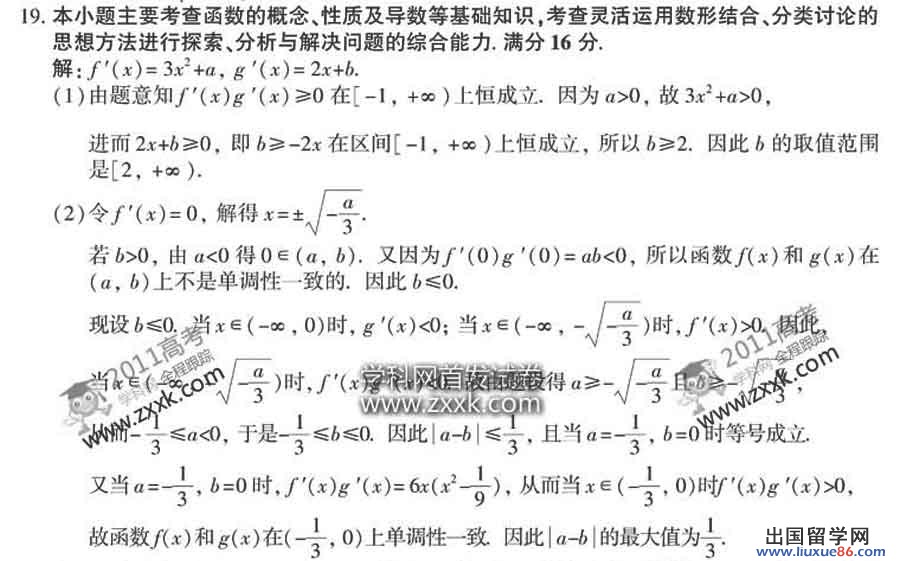 19. 本小题主要考查函数的概念、性质及导数等基础知识,考查灵活运用数形结合、分类讨论的
思想方法进行探索、分析与解决问题的综合能力. 满分 16 分.
解: f′(x)=3x²+a, g′(x)=2x+b.
(1)由题意知f′(x)g′(x)≥0 在[-1, +∞)上恒成立. 因为 a>0, 故 3x²+a>0,
进而 2x+b≥0, 即 b≥-2x 在区间[-1, +∞)上恒成立, 所以 b≥2. 因此 b 的取值范围
是[2, +∞).
(2)令f′(x)=0, 解得 x=±√(-a/3).
若 b>0, 由 a<0 得 0∈(a, b). 又因为f′(0)g′(0)=ab<0, 所以函数 f(x)和 g(x)在
(a, b)上不是单调性一致的. 因此 b≤0.
现设 b≤0. 当 x∈(-∞, 0)时, g′(x)<0; 当 x∈(-∞, -√(-a/3))时, f′(x)>0. 因此,
当 x∈(-∞ √(-a/3))时, f′(x)g′(x)<0. 故由题设得 a≥-√(-a/3) 且 b≥- 3,
-1/3≤a<0, 于是-1/3≤b≤0. 因此|a-b|≤1/3, 且当 a=-1/3, b=0 时等号成立.
又当 a=-1/3, b=0 时, f′(x)g′(x)=6x(x²-1/9), 从而当 x∈(-1/3, 0)时f′(x)g′(x)>0,
故函数 f(x)和 g(x)在(-1/3, 0)上单调性一致. 因此|a-b|的最大值为1/3.
2011高考
学科网 全程跟踪
www.zxxk.com
学科网首发试卷
www.zxxk.com
2011高考
学科网 全程跟踪
www.zxxk.com
出国留学网
www.liuxue86.com